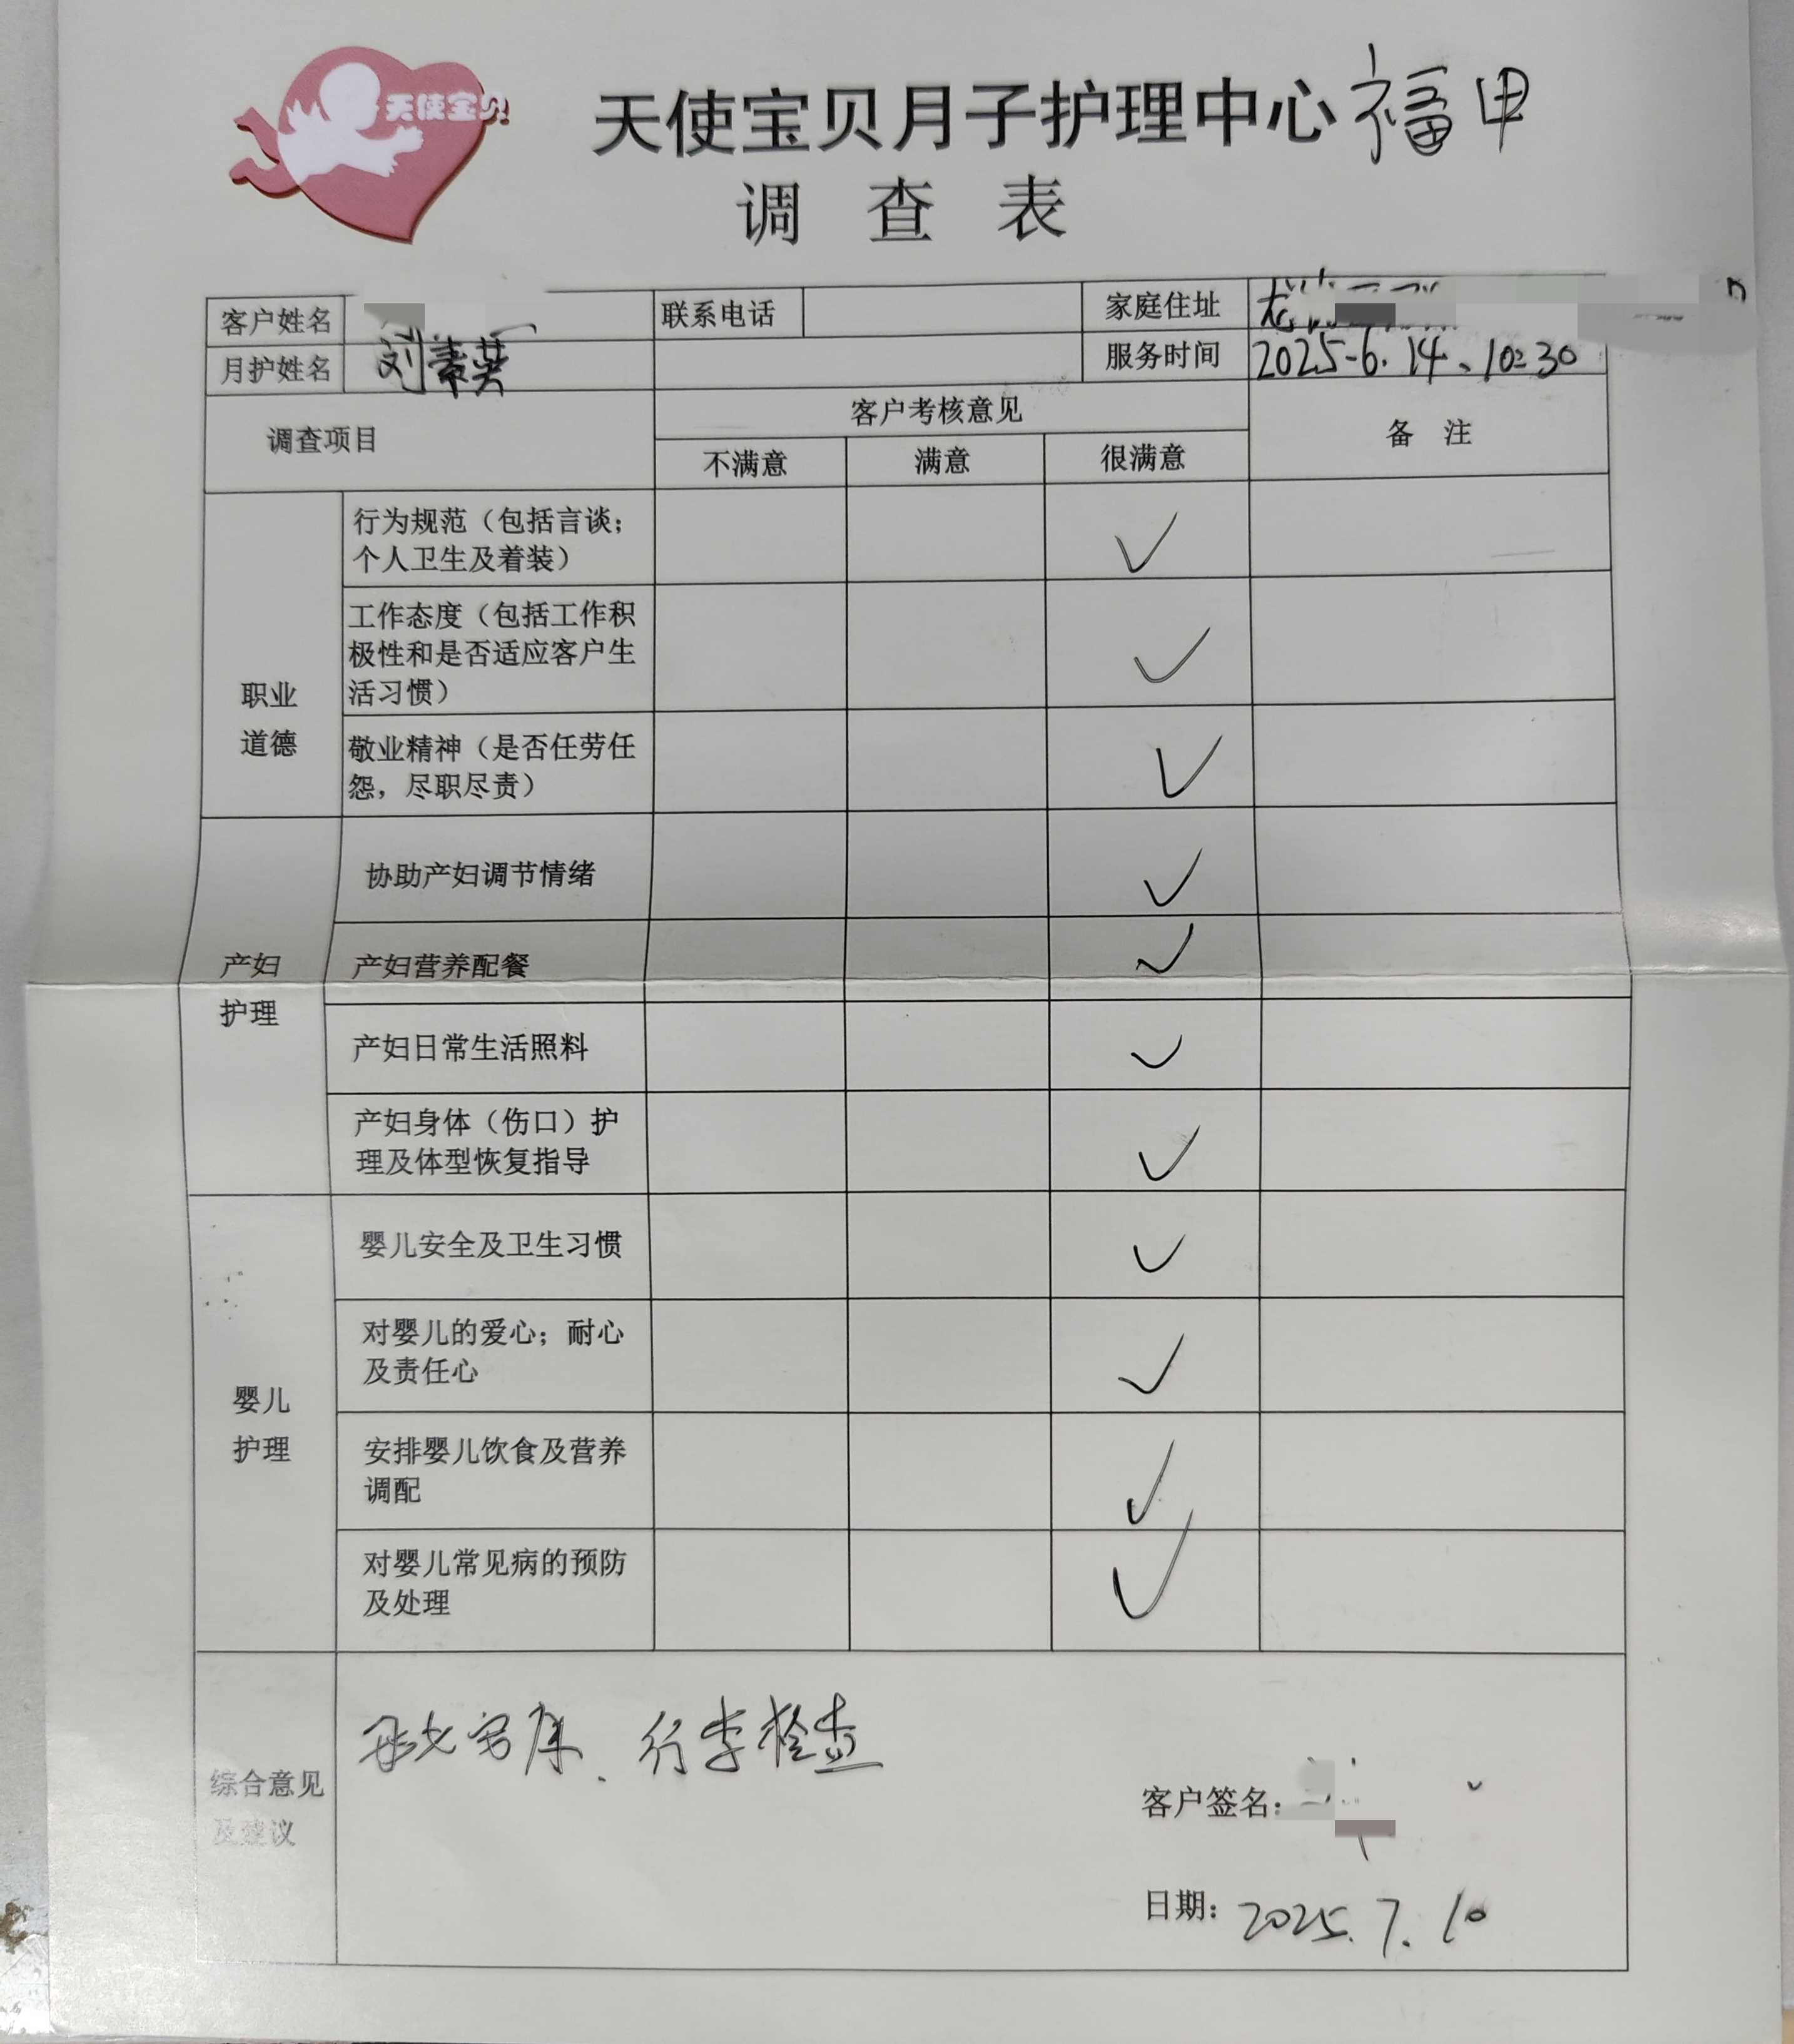 天使宝贝
天使宝贝月子护理中心 福田
调 查 表
客户姓名 联系电话 家庭住址
月护姓名 刘素英 服务时间 2025-6.14、10:30
调查项目 客户考核意见 备 注
不满意 满意 很满意
职业
道德
行为规范（包括言谈；
个人卫生及着装）
✓
工作态度（包括工作积
极性和是否适应客户生
活习惯）
✓
敬业精神（是否任劳任
怨，尽职尽责）
✓
产妇
护理
协助产妇调节情绪 ✓
产妇营养配餐 ✓
产妇日常生活照料 ✓
产妇身体（伤口）护
理及体型恢复指导
✓
婴儿
护理
婴儿安全及卫生习惯 ✓
对婴儿的爱心；耐心
及责任心
✓
安排婴儿饮食及营养
调配
✓
对婴儿常见病的预防
及处理
✓
综合意见
及建议
行李检查
客户签名：
日期：2025.7.10